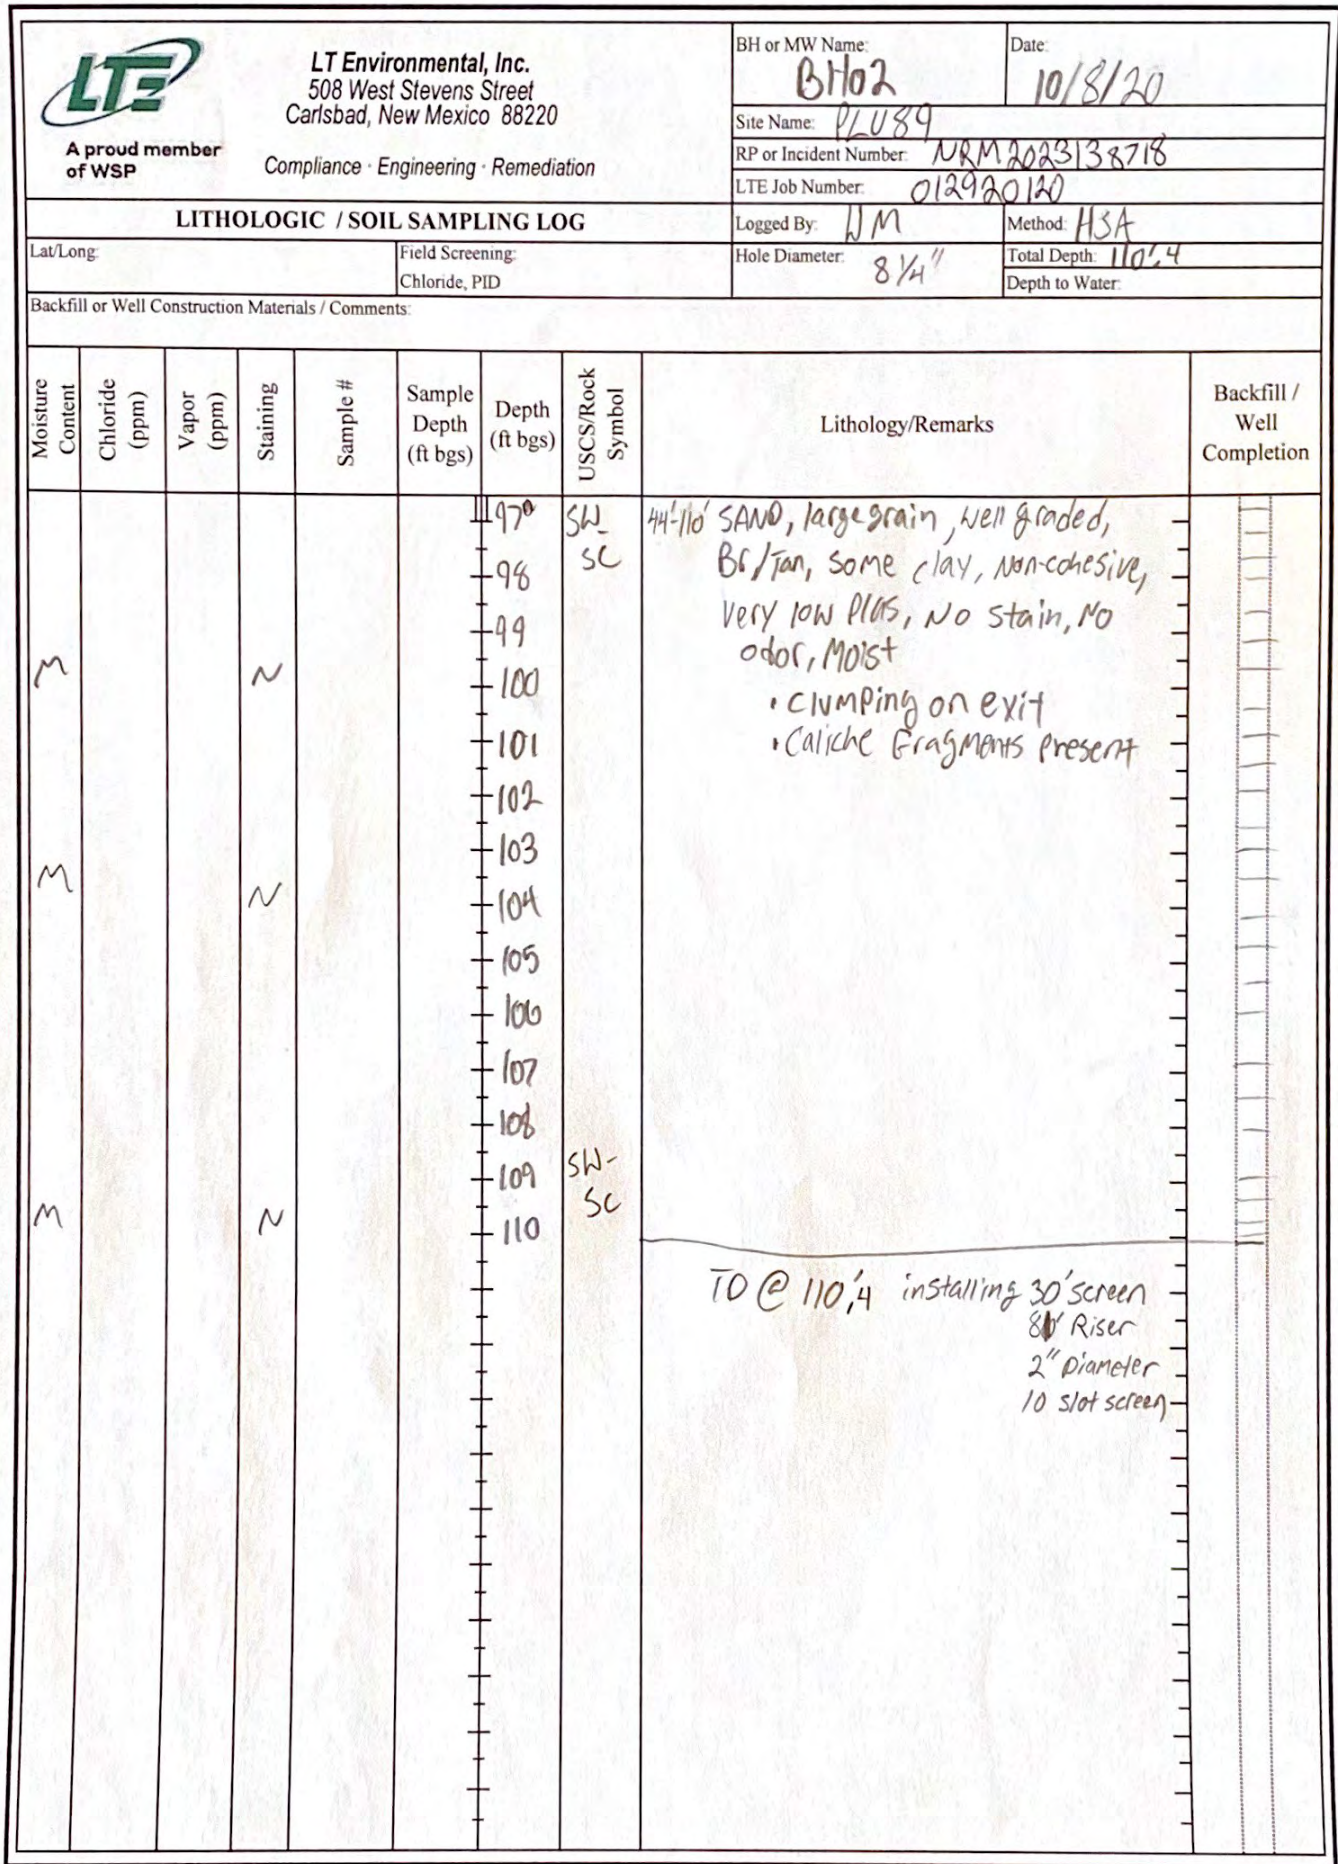 LTE
A proud member
of WSP
LT Environmental, Inc.
508 West Stevens Street
Carlsbad, New Mexico 88220
Compliance · Engineering · Remediation
BH or MW Name: BH02
Date: 10/8/20
Site Name: PLU89
RP or Incident Number: NRM2023138718
LTE Job Number: 012920120
LITHOLOGIC / SOIL SAMPLING LOG
Logged By: WM
Method: HSA
Lat/Long:
Field Screening:
Chloride, PID
Hole Diameter: 8 1/4"
Total Depth: 110',4
Depth to Water:
Backfill or Well Construction Materials / Comments:
Moisture Content
Chloride (ppm)
Vapor (ppm)
Staining
Sample #
Sample Depth (ft bgs)
Depth (ft bgs)
USCS/Rock Symbol
Lithology/Remarks
Backfill / Well Completion
97 SW- 44'-110' SAND, large grain, well graded,
98 SC Br/Tan, some clay, non-cohesive,
99 very low Plas, No stain, No
odor, Moist
M N 100 • clumping on exit
101 • Caliche Fragments present
102
103
M N 104
105
106
107
108
109 SW-
SC
M N 110
TD @ 110',4 installing 30' screen
80' Riser
2" Diameter
10 slot screen